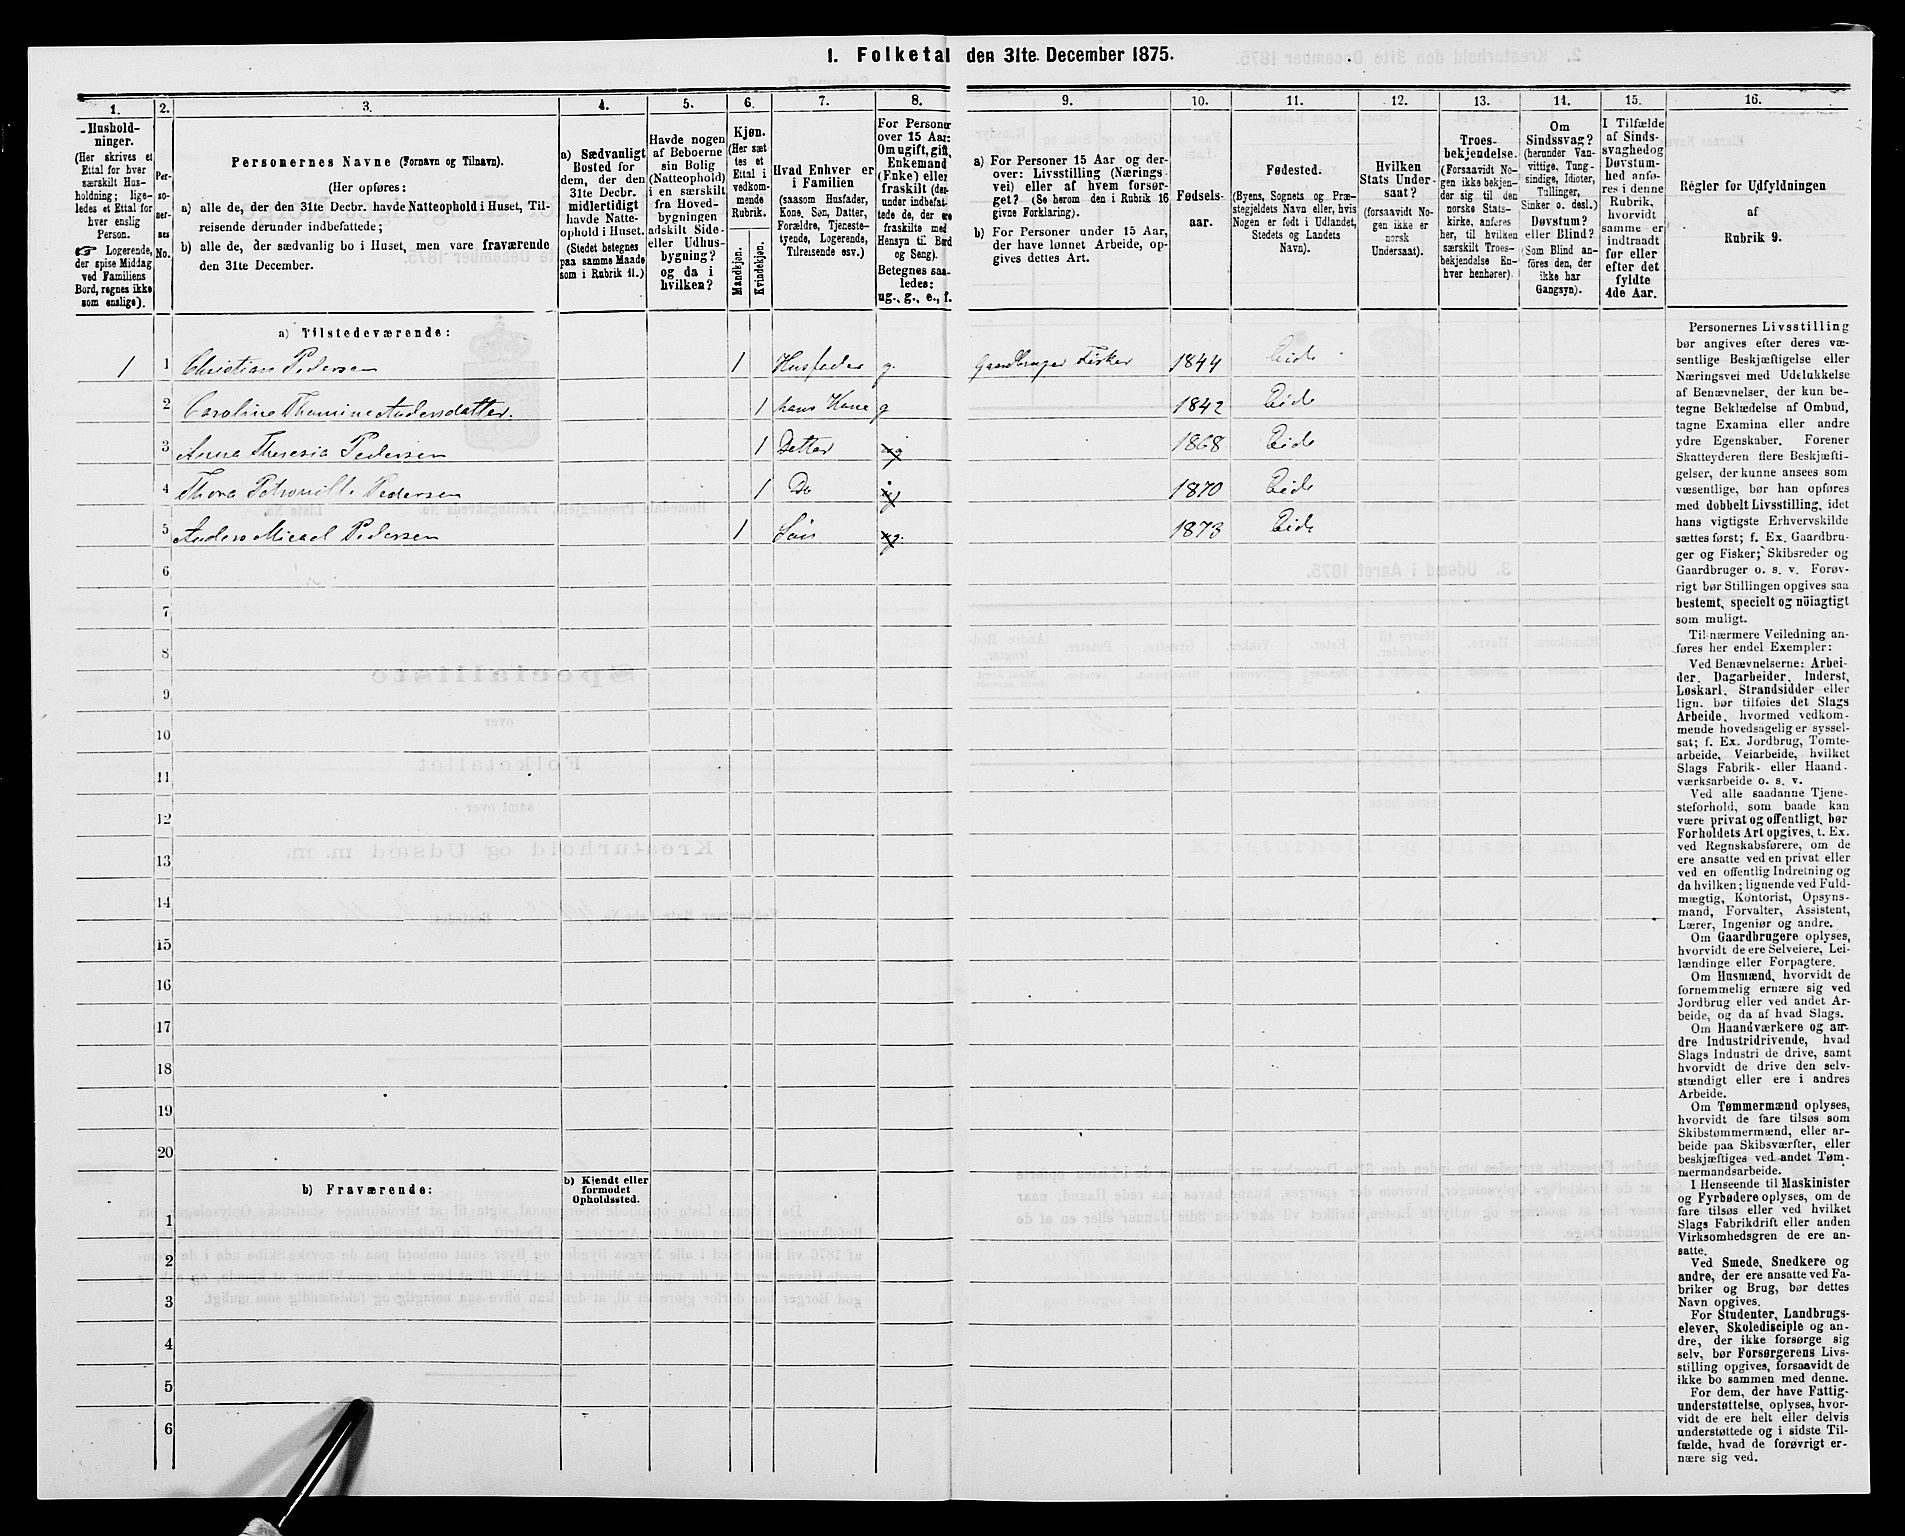 1. Folketal den 31te December 1875.
1.
2.
3.
4.
5.
6.
7.
8.
9.
10.
11.
12.
13.
14.
15.
16.
Hushold-
ninger.
(Her skrives et
Ettal for hver
særskilt Hus-
holdning; lige-
ledes et Ettal for
hver enslig
Person.
☞ Logerende,
der spise Middag
ved Familiens
Bord, regnes ikke
som enslige).
Per-
so-
ner-
nes
No.
Personernes Navne (Fornavn og Tilnavn).
(Her opføres:
a) alle de, der den 31te Decbr. havde Natteophold i Huset, Til-
reisende derunder indbefattede;
b) alle de, der sædvanlig bo i Huset, men vare fraværende
den 31te December.
a) Sædvanligt
Bosted for
dem, der den
31te Decbr.
midlertidigt
havde Natte-
ophold i Huset.
(Stedet betegnes
paa samme Maade
som i Rubrik 11.)
Havde nogen
af Beboerne
sin Bolig
(Natteophold)
i en særskilt
fra Hoved-
bygningen
adskilt Side-
eller Udhus-
bygning?
og da i
hvilken?
Kjøn.
(Her sæt-
tes et
Ettal i
vedkom-
mende
Rubrik.
Mandkjøn.
Kvindekjøn.
Hvad Enhver er
i Familien
(saasom Husfader,
Kone, Søn, Datter,
Forældre, Tjeneste-
tyende, Logerende,
Tilreisende osv.)
For Personer
over 15 Aar:
Om ugift, gift,
Enkemand
(Enke) eller
fraskilt (der-
under indbefat-
tede de, der ere
fraskilte med
Hensyn til Bord
og Seng).
Betegnes saa-
ledes:
ug., g., e., f.
a) For Personer 15 Aar og der-
over: Livsstilling (Nærings-
vei) eller af hvem forsør-
get? (Se herom den i Rubrik 16
givne Forklaring).
b) For Personer under 15 Aar,
der have lønnet Arbeide, op-
gives dettes Art.
Fødsels-
aar.
Fødested.
(Byens, Sognets og Præ-
stegjeldets Navn eller, hvis
Nogen er født i Udlandet,
Stedets og Landets
Navn).
Hvilken
Stats Under-
saat?
(forsaavidt No-
gen ikke er
norsk
Undersaat).
Troes-
bekjendelse.
(Forsaavidt No-
gen ikke bekjen-
der sig til den
norske Stats-
kirke, anføres
her, til hvilken
særskilt Troes-
bekjendelse En-
hver henhører).
Om
Sindssvag?
(herunder Van-
vittige, Tung-
sindige, Idioter,
Tullinger,
Sinker o. desl.)
Døvstum?
eller Blind?
(Som Blind an-
føres den, der
ikke har
Gangsyn).
I Tilfælde
af Sinds-
svaghed og
Døvstum-
hed anfø-
res i denne
Rubrik,
hvorvidt
samme er
indtraadt
før eller
efter det
fyldte
4de Aar.
Regler for Udfyldningen
af
Rubrik 9.
a) Tilstedeværende:
1 1 Christian Pedersen 1 Husfader g. Gaardbruger Fisker 1844 Eide
2 Caroline Thomine Andersdatter. 1 hans Kone g 1842 Eide
3 Anna Theresia Pedersen 1 Detter ug 1868 Eide
4 Thora Petronille Pedersen 1 Do ug 1870 Eide
5 Anders Micael Pedersen 1 Søn ug. 1873 Eide
6
7
8
9
10
11
12
13
14
15
16
17
18
19
20
b) Fraværende:
b) Kjendt eller
formodet
Opholdssted.
1
2
3
4
5
6
Personernes Livsstilling
bør angives efter deres væ-
sentlige Beskjæftigelse eller
Næringsvei med Udelukkelse
af Benævnelser, der kun be-
tegne Beklædelse af Ombud,
tagne Examina eller andre
ydre Egenskaber. Forener
Skatteyderen flere Beskjæfti-
gelser, der kunne ansees som
væsentlige, bør han opføres
med dobbelt Livsstilling, idet
hans vigtigste Erhvervskilde
sættes først; f. Ex. Gaardbru-
ger og Fisker; Skibsreder og
Gaardbruger o. s. v. Forøv-
rigt bør Stillingen opgives saa
bestemt, specielt og nöiagtigt
som muligt.
Til nærmere Veiledning an-
føres her endel Exempler:
Ved Benævnelserne: Arbei-
der, Dagarbeider, Inderst,
Løskarl, Strandsidder eller
lign. bør tilføies det Slags
Arbeide, hvormed vedkom-
mende hovedsagelig er syssel-
sat; f. Ex. Jordbrug, Tomte-
arbeide, Veiarbeide, hvilket
Slags Fabrik- eller Haand-
værksarbeide o. s. v.
Ved alle saadanne Tjene-
steforhold, som baade kan
være privat og offentligt, bør
Forholdets Art opgives, t. Ex.
ved Regnskabsførere, om de
ere ansatte ved en privat eller
ved en offentlig Indretning og
da hvilken; lignende ved Fuld-
mægtig, Kontorist, Opsyns-
mand, Forvalter, Assistent,
Lærer, Ingeniør og andre.
Om Gaardbrugere oplyses,
hvorvidt de ere Selveiere, Lei-
lændinge eller Forpagtere.
Om Husmænd, hvorvidt de
fornemmelig ernære sig ved
Jordbrug eller ved andet Ar-
beide, og da af hvad Slags.
Om Haandværkere og an-
dre Industridrivende, hvad
Slags Industri de drive, samt
hvorvidt de drive den selv-
stændigt eller ere i andres
Arbeide.
Om Tømmermænd oplyses,
hvorvidt de fare tilsøs som
Skibstømmermænd, eller ar-
beide paa Skibsværfter, eller
beskjæftiges ved andet Tøm-
mermandsarbeide.
I Henseende til Maskinister
og Fyrbødere oplyses, om de
fare tilsøs eller ved hvilket
Slags Fabrikdrift eller anden
Virksomhedsgren de ere an-
satte.
Ved Smede, Snedkere og
andre, der ere ansatte ved Fa-
briker og Brug, bør dettes
Navn opgives.
For Studenter, Landbrugs-
elever, Skoledisciple og an-
dre, der ikke forsørge sig
selv, bør Forsørgerens Livs-
stilling opgives, forsaavidt de
ikke bo sammen med denne.
For dem, der have Fattig-
understøttelse, oplyses, hvor-
vidt de ere helt eller delvis
understøttede og i sidste Til-
fælde, hvad de forøvrigt er-
nære sig ved.